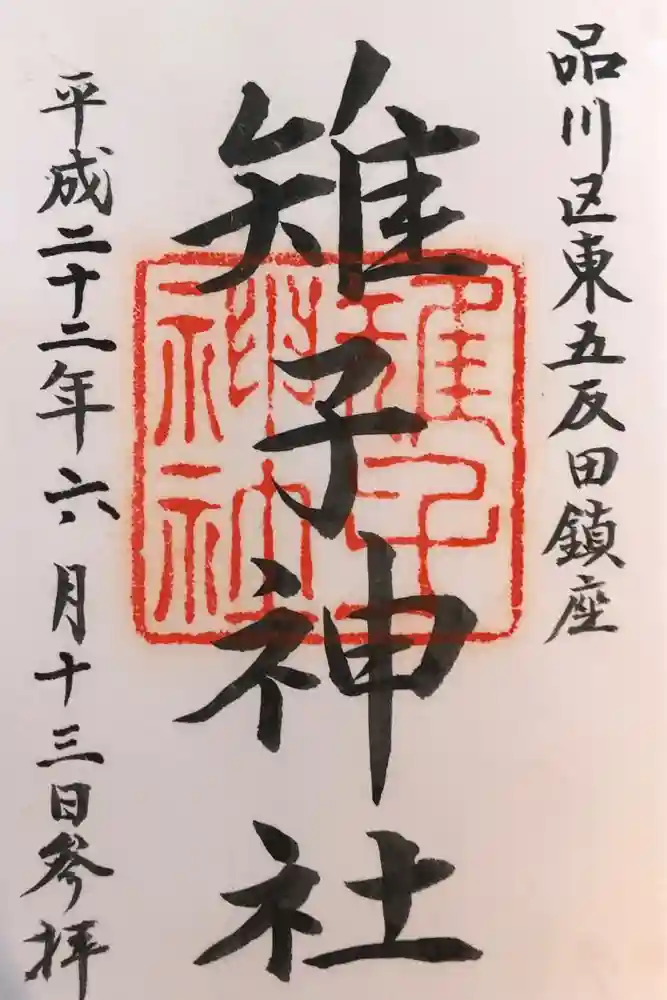 品川区東五反田鎮座
雉子神社
雉子
神社
平成二十二年六月十三日参拝